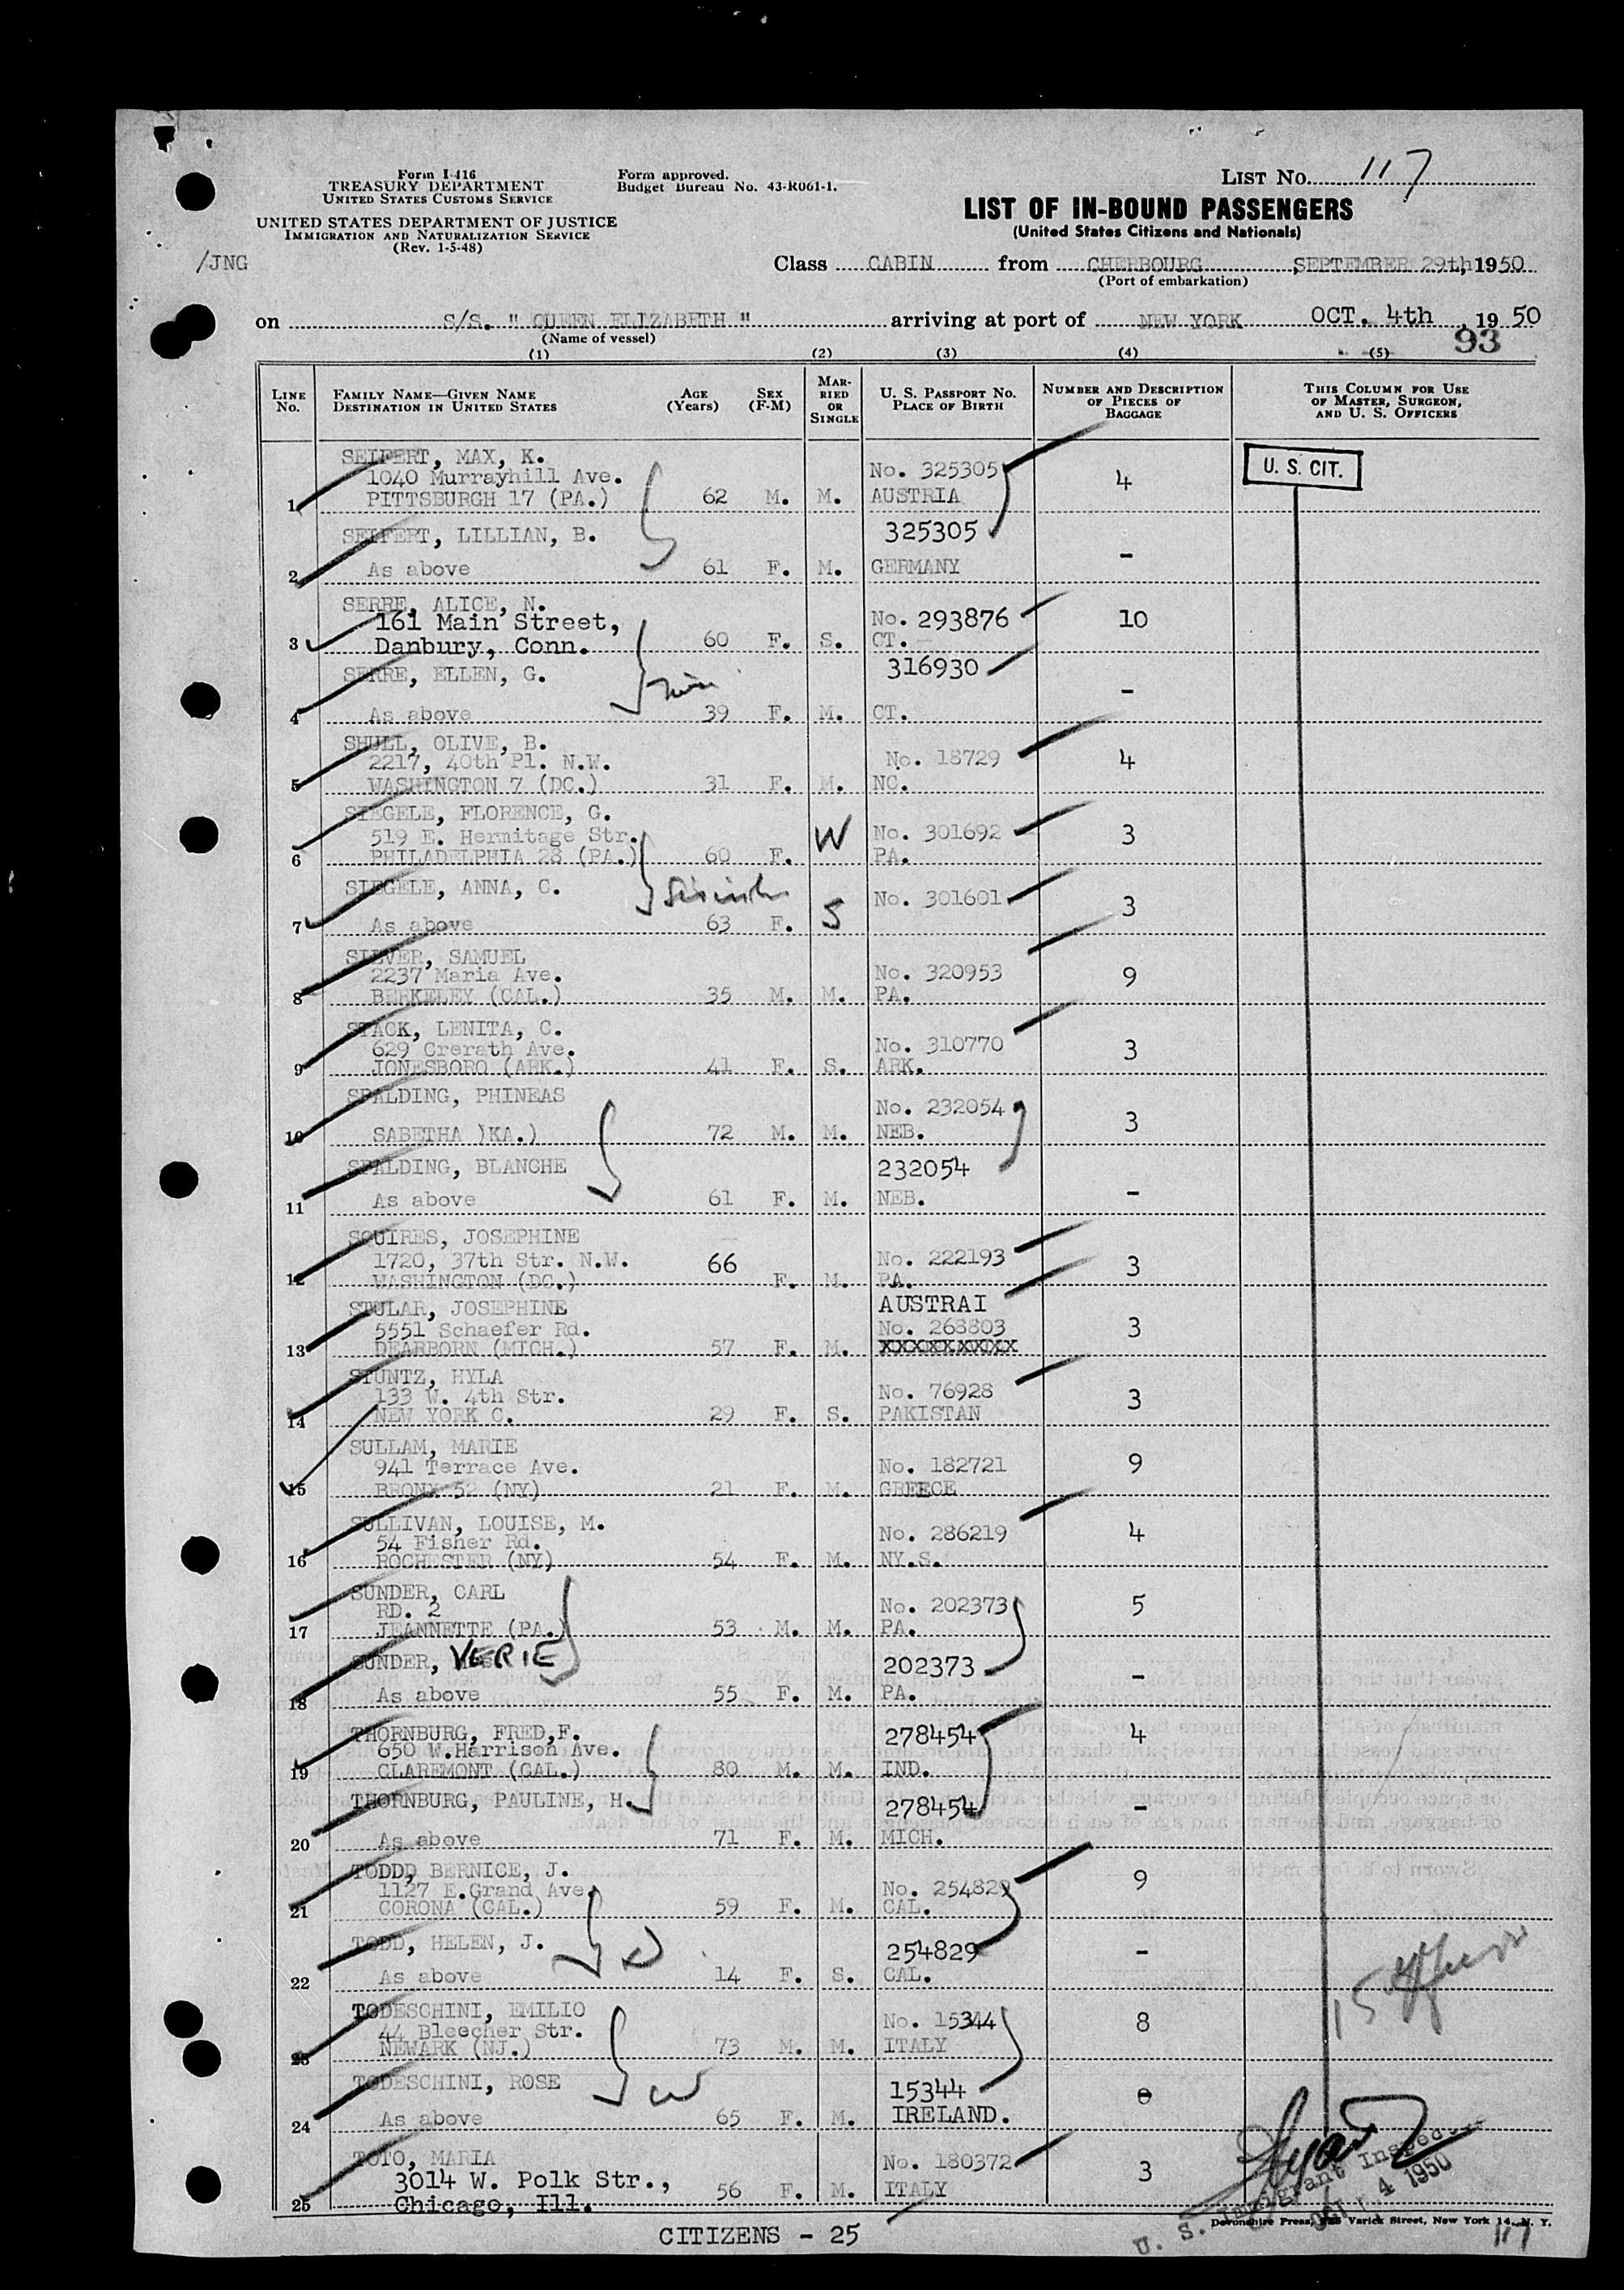 Form I-416
TREASURY DEPARTMENT
UNITED STATES CUSTOMS SERVICE
UNITED STATES DEPARTMENT OF JUSTICE
IMMIGRATION AND NATURALIZATION SERVICE
(Rev. 1-5-48)
Form approved.
Budget Bureau No. 43-R061-1.
LIST No. 117
LIST OF IN-BOUND PASSENGERS
(United States Citizens and Nationals)
/JNG
Class CABIN from CHERBOURG SEPTEMBER 29th, 1950
(Port of embarkation)
on S/S. " QUEEN ELIZABETH " arriving at port of NEW YORK OCT. 4th, 1950
(Name of vessel)
93
(1) (2) (3) (4) (5)
LINE No. FAMILY NAME—GIVEN NAME DESTINATION IN UNITED STATES AGE (Years) SEX (F-M) MARRIED OR SINGLE U. S. PASSPORT NO. PLACE OF BIRTH NUMBER AND DESCRIPTION OF PIECES OF BAGGAGE THIS COLUMN FOR USE OF MASTER, SURGEON, AND U. S. OFFICERS
SEIFERT, MAX, K.
1040 Murrayhill Ave. No. 325305 4 U. S. CIT.
1 PITTSBURGH 17 (PA.) 62 M. M. AUSTRIA
SEIFERT, LILLIAN, B. 325305 -
2 As above 61 F. M. GERMANY
SERRE, ALICE, N.
161 Main Street, No. 293876 10
3 Danbury, Conn. 60 F. S. CT.
SERRE, ELLEN, G. 316930 -
4 As above 39 F. M. CT.
SHULL, OLIVE, B.
2217, 40th Pl. N.W. No. 18729 4
5 WASHINGTON 7 (DC.) 31 F. M. NC.
SIEGELE, FLORENCE, G.
519 E. Hermitage Str. W No. 301692 3
6 PHILADELPHIA 28 (PA.) 60 F. PA.
SIEGELE, ANNA, C. No. 301601 3
7 As above 63 F. S
SILVER, SAMUEL
2237 Maria Ave. No. 320953 9
8 BERKELEY (CAL.) 35 M. M. PA.
STACK, LENITA, C.
629 Crerath Ave. No. 310770 3
9 JONESBORO (ARK.) 41 F. S. ARK.
SPALDING, PHINEAS No. 232054 3
10 SABETHA )KA.) 72 M. M. NEB.
SPALDING, BLANCHE 232054 -
11 As above 61 F. M. NEB.
SQUIRES, JOSEPHINE
1720, 37th Str. N.W. 66 No. 222193 3
12 WASHINGTON (DC.) F. M. PA.
STULAR, JOSEPHINE AUSTRAI
5551 Schaefer Rd. No. 268803 3
13 DEARBORN (MICH.) 57 F. M. XXXXXXXXXX
STUNTZ, HYLA
133 W. 4th Str. No. 76928 3
14 NEW YORK C. 29 F. S. PAKISTAN
SULLAM, MARIE
941 Terrace Ave. No. 182721 9
15 BRONX 52 (NY) 21 F. M. GREECE
SULLIVAN, LOUISE, M.
54 Fisher Rd. No. 286219 4
16 ROCHESTER (NY) 54 F. M. NY.S.
SUNDER, CARL
RD. 2 No. 202373 5
17 JEANNETTE (PA.) 53 M. M. PA.
SUNDER, VERIE 202373 -
18 As above 55 F. M. PA.
THORNBURG, FRED,F. 278454 4
650 W.Harrison Ave.
19 CLAREMONT (CAL.) 80 M. M. IND.
THORNBURG, PAULINE, H. 278454 -
20 As above 71 F. M. MICH.
TODDD BERNICE, J.
1127 E.Grand Ave. No. 254829 9
21 CORONA (CAL.) 59 F. M. CAL.
TODD, HELEN, J. 254829 -
22 As above 14 F. S. CAL.
TODESCHINI, EMILIO No. 15344 8
44 Bleecher Str.
23 NEWARK (NJ.) 73 M. M. ITALY
TODESCHINI, ROSE 15344
24 As above 65 F. M. IRELAND.
TOTO, MARIA No. 180372 3
3014 W. Polk Str.,
25 Chicago, Ill. 56 F. M. ITALY
U. S. Immigrant Inspector
OCT 4 1950
Devonshire Press, Varick Street, New York 14, N. Y.
CITIZENS - 25
117